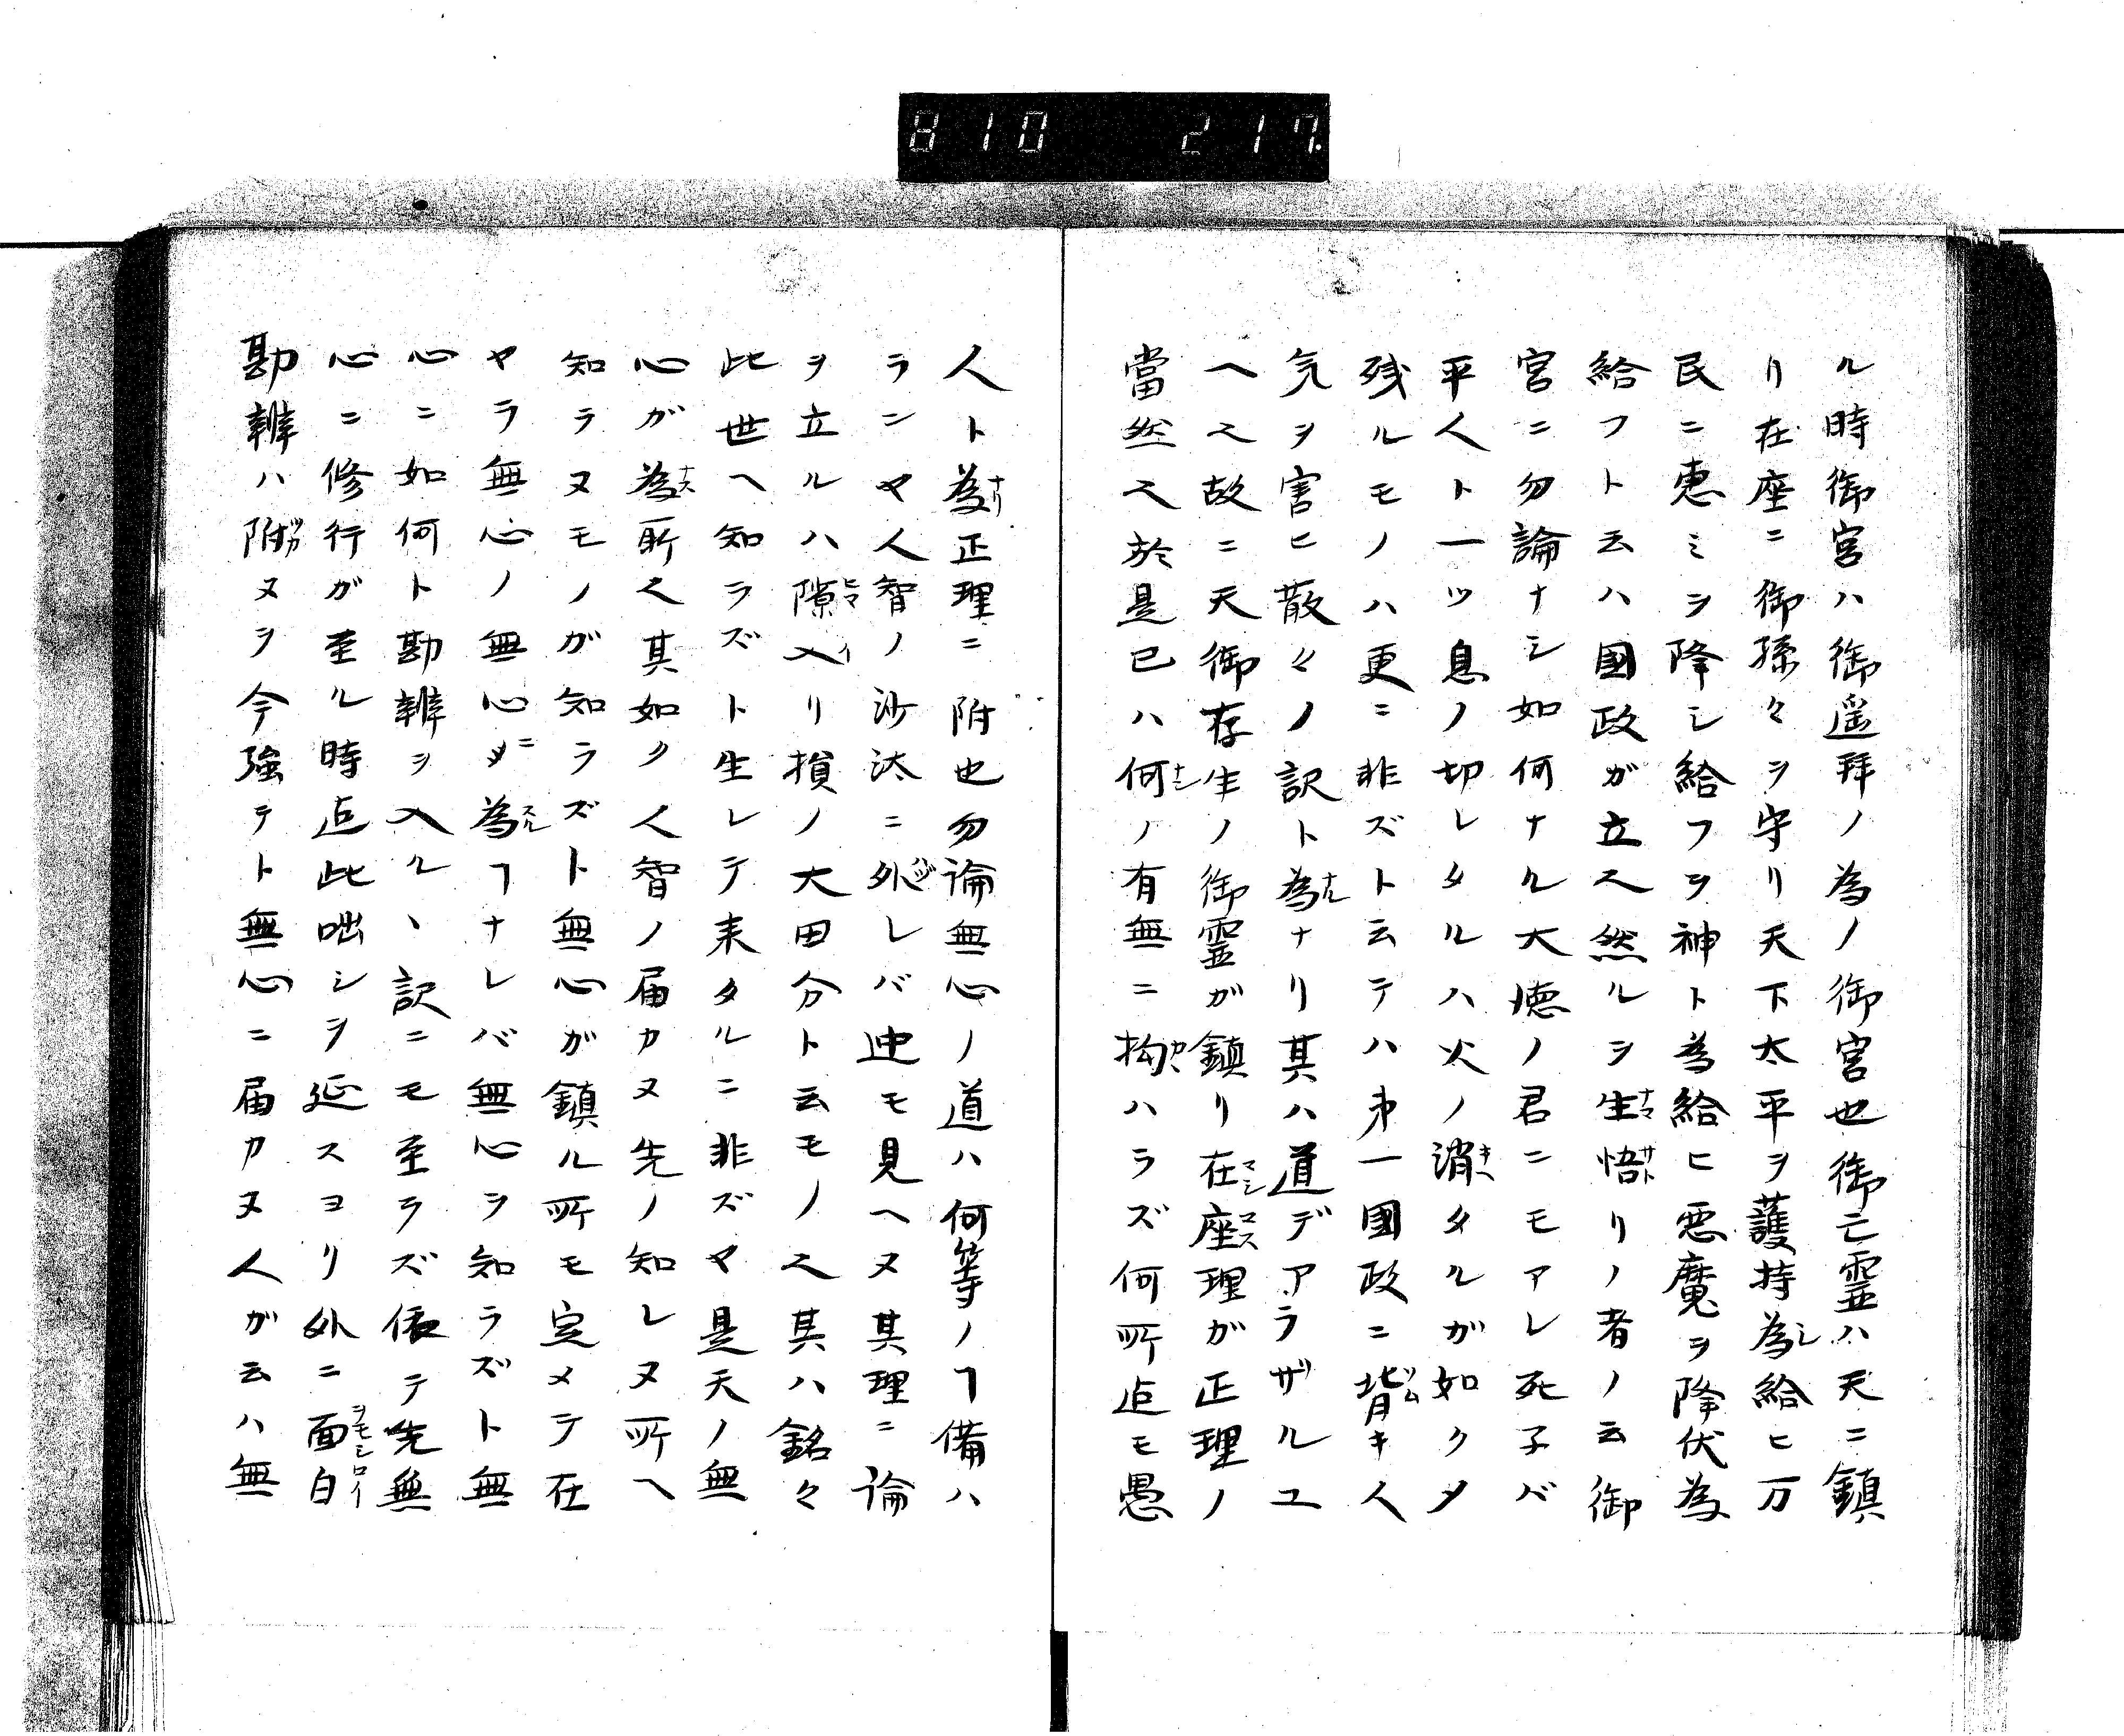 810 217.
ル時御宮ハ御遥拜ノ為ノ御宮也御亡霊ハ天ニ鎮
リ在座ニ御孫々ヲ守リ天下太平ヲ護持為給ヒ万
民ニ恵ミヲ降シ給フヲ神ト為給ヒ悪魔ヲ降伏為
給フト云ハ國政ガ立ス然ルヲ生悟リノ者ノ云御
宮ニ勿論ナシ如何ナル大徳ノ君ニモアレ死子バ
平人ト一ツ息ノ切レタルハ火ノ消タルガ如クタ
残ルモノハ更ニ非ズト云テハ第一國政ニ背キ人
気ヲ害ヒ散々ノ訳ト為ナリ其ハ道デアラザルユ
ヘス故ニ天御存生ノ御霊ガ鎮リ在座理ガ正理ノ
當然ス於是已ハ何ノ有無ニ拘ハラズ何所迠モ愚
人ト為正理ニ附也勿論無心ノ道ハ何等ノヿ備ハ
ランヤ人智ノ沙汰ニ外レバ迚モ見ヘヌ其理ニ論
ヲ立ルハ隙入リ損ノ大田分ト云モノス其ハ銘々
此世ヘ知ラズト生レテ来タルニ非ズヤ是天ノ無
心ガ為所ス其如ク人智ノ届カヌ先ノ知レヌ所ヘ
知ラヌモノガ知ラズト無心ガ鎮ル所モ定メテ在
ヤラ無心ノ無心ダ為ヿナレバ無心ヲ知ラズト無
心ニ如何ト勘辨ヲ入ル、訳ニモ至ラズ依テ先無
心ニ修行ガ至ル時迠此咄シヲ延スヨリ外ニ面白
勘辨ハ附ヌヲ今強テト無心ニ届カヌ人ガ云ハ無